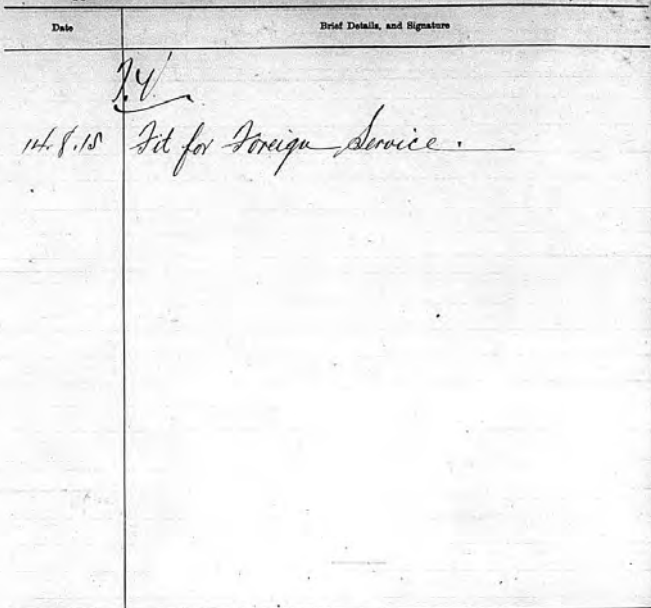 Date Brief Details, and Signature
14.8.15 Fit for Foreign Service.